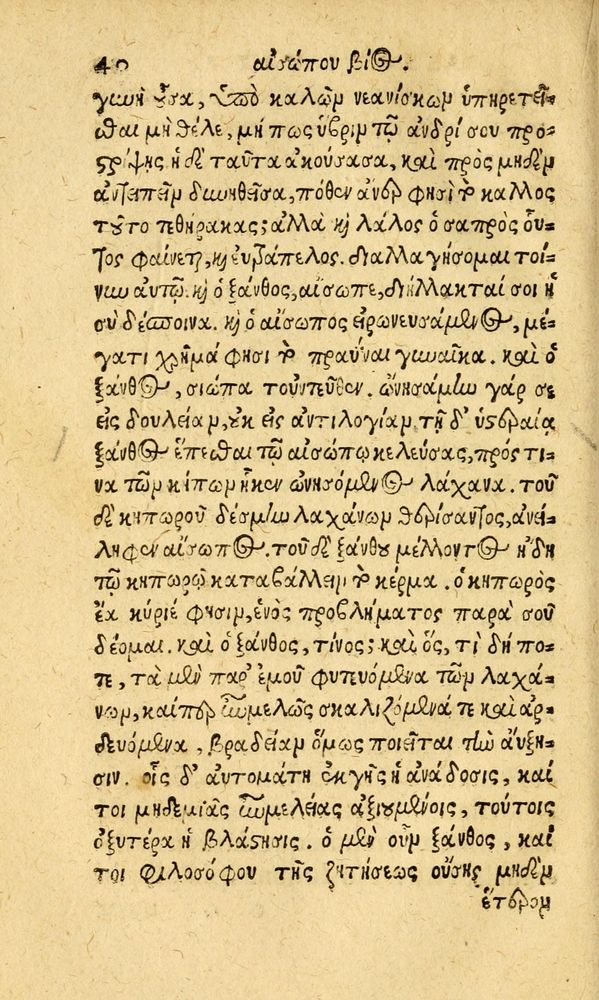 40 αἰσώπου βίος.
γυνὴ οὖσα, ὑπὸ καλῶν νεανίσκων ὑπηρετεῖ-
σθαι μὴ θέλε, μή πως ὕβριν τῷ ἀνδρί σου προ-
στρίψῃς ἡ δὲ ταῦτα ἀκούσασα, καὶ πρὸς μηδὲν
ἀντειπεῖν δυνηθεῖσα, πόθεν ἄνερ φησὶ τὸ κάλλος
τοῦτο πεθήρακας; ἀλλὰ καὶ λάλος ὁ σαπρὸς οὗ-
τος φαίνεται, καὶ εὐτράπελος. διαλλαγήσομαι τοί-
νυν αὐτῷ. καὶ ὁ ξάνθος, αἴσωπε, διήλλακταί σοι ἡ
σὺ δέσποινα. καὶ ὁ αἴσωπος εἰρωνευσάμενος, μέ-
γα τι χρῆμα φησὶ τὸ πραῧναι γυναῖκα. καὶ ὁ
ξάνθος, σιώπα τοὐντεῦθεν. ὠνησάμην γάρ σε
εἰς δουλείαν, οὐκ εἰς ἀντιλογίαν. τῇ δ' ὑστεραίᾳ
ξάνθος ἕπεσθαι τῷ αἰσώπῳ κελεύσας, πρός τι-
να τῶν κήπων ἧκεν ὠνησόμενος λάχανα. τοῦ
δὲ κηπωροῦ δέσμην λαχάνων θερίσαντος, ἀνεί-
ληφεν αἴσωπος. τοῦ δὲ ξάνθου μέλλοντος ἤδη
τῷ κηπωρῷ καταβάλλειν τὸ κέρμα. ὁ κηπωρὸς
ἔα κύριέ φησιν, ἑνὸς προβλήματος παρὰ σοῦ
δέομαι. καὶ ὁ ξάνθος, τίνος; καὶ ὅς, τί δή πο-
τε, τὰ μὲν παρ' ἐμοῦ φυτευόμενα τῶν λαχά-
νων, καίπερ ἐπιμελῶς σκαλιζόμενά τε καὶ ἀρ-
δευόμενα, βραδεῖαν ὅμως ποιεῖται τὴν αὔξη-
σιν. οἷς δ' αὐτομάτη ἐκ γῆς ἡ ἀνάδοσις, καί
τοι μηδεμιᾶς ἐπιμελείας ἀξιουμένοις, τούτοις
ὀξυτέρα ἡ βλάστησις. ὁ μὲν οὖν ξάνθος, καί
τοι φιλοσόφου τῆς ζητήσεως οὔσης μηδὲν
ἕτερον